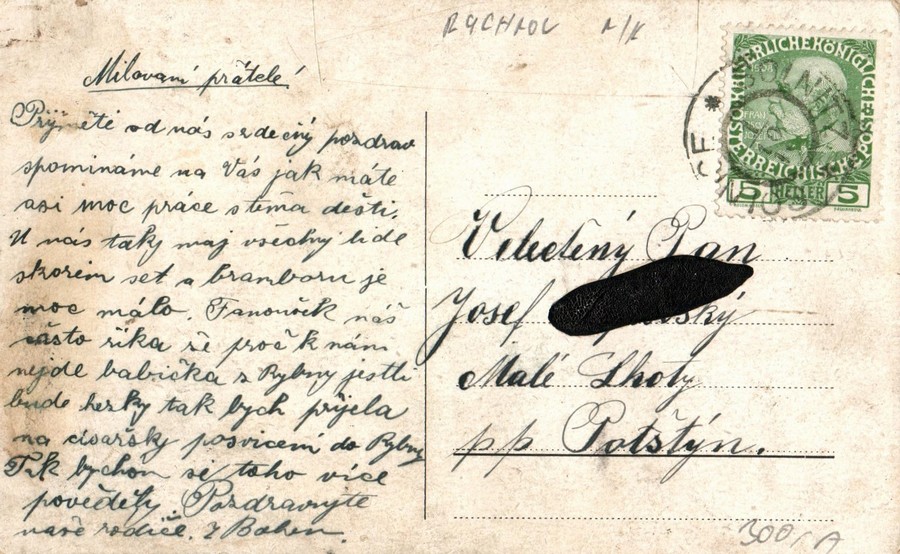 RYCHNOV n/K
Milovaní přátelé!
Přijměti od nás srdečný pozdrav
spomináme na Vás jak máte
asi moc práce s těma dešti.
U nás taky maj všechny lidé
skorem set a bramboru je
moc málo. Fanoušik náš
často řika že proč k nám
nejde babička z Rybny jestli
bude hezky tak bych přijela
na cisařsky posvicení do Rybny
Tak bychon si toho více
pověděly. Pozdravujte
naše rodiče. Z Bohem.
KAISERLICHEKÖNIGLICHE
ÖSTERREICHISCHE
5 HELLER 5
Velectěný Pan
Josef
Malé Lhoty
pp Potštýn.
300/A